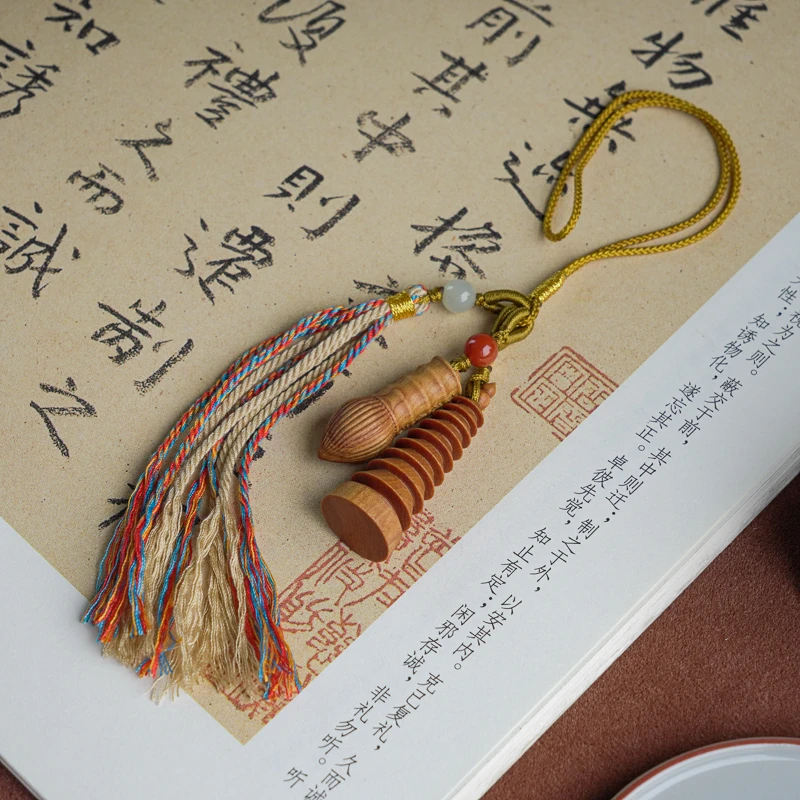 物無迹操
前其中則遷制之
復禮久而誠
知誘
视为之则。蔽交于前,其中则迁;制之于外,以安其内。克己复礼,久而诚
性;知诱物化,遂忘其正。卓彼先觉,知止有定;闲邪存诚,非礼勿听。听